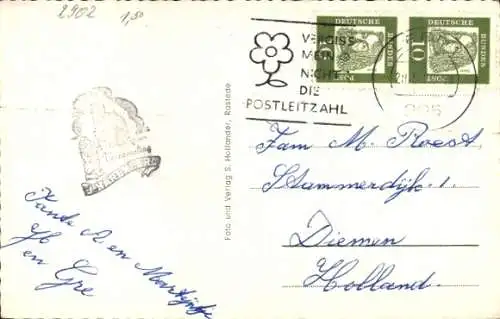 2902 1,50
VERGISS
MEIN
NICHT
DIE
POSTLEITZAHL
DEUTSCHE
BUNDES
POST
10
DEUTSCHE
BUNDES
POST
10
Foto und Verlag S. Hollander, Rastede
Fam M. Roest
Stammerdijk. 1
Diemen
Holland.
Tante A. en Martijntje
en Gre